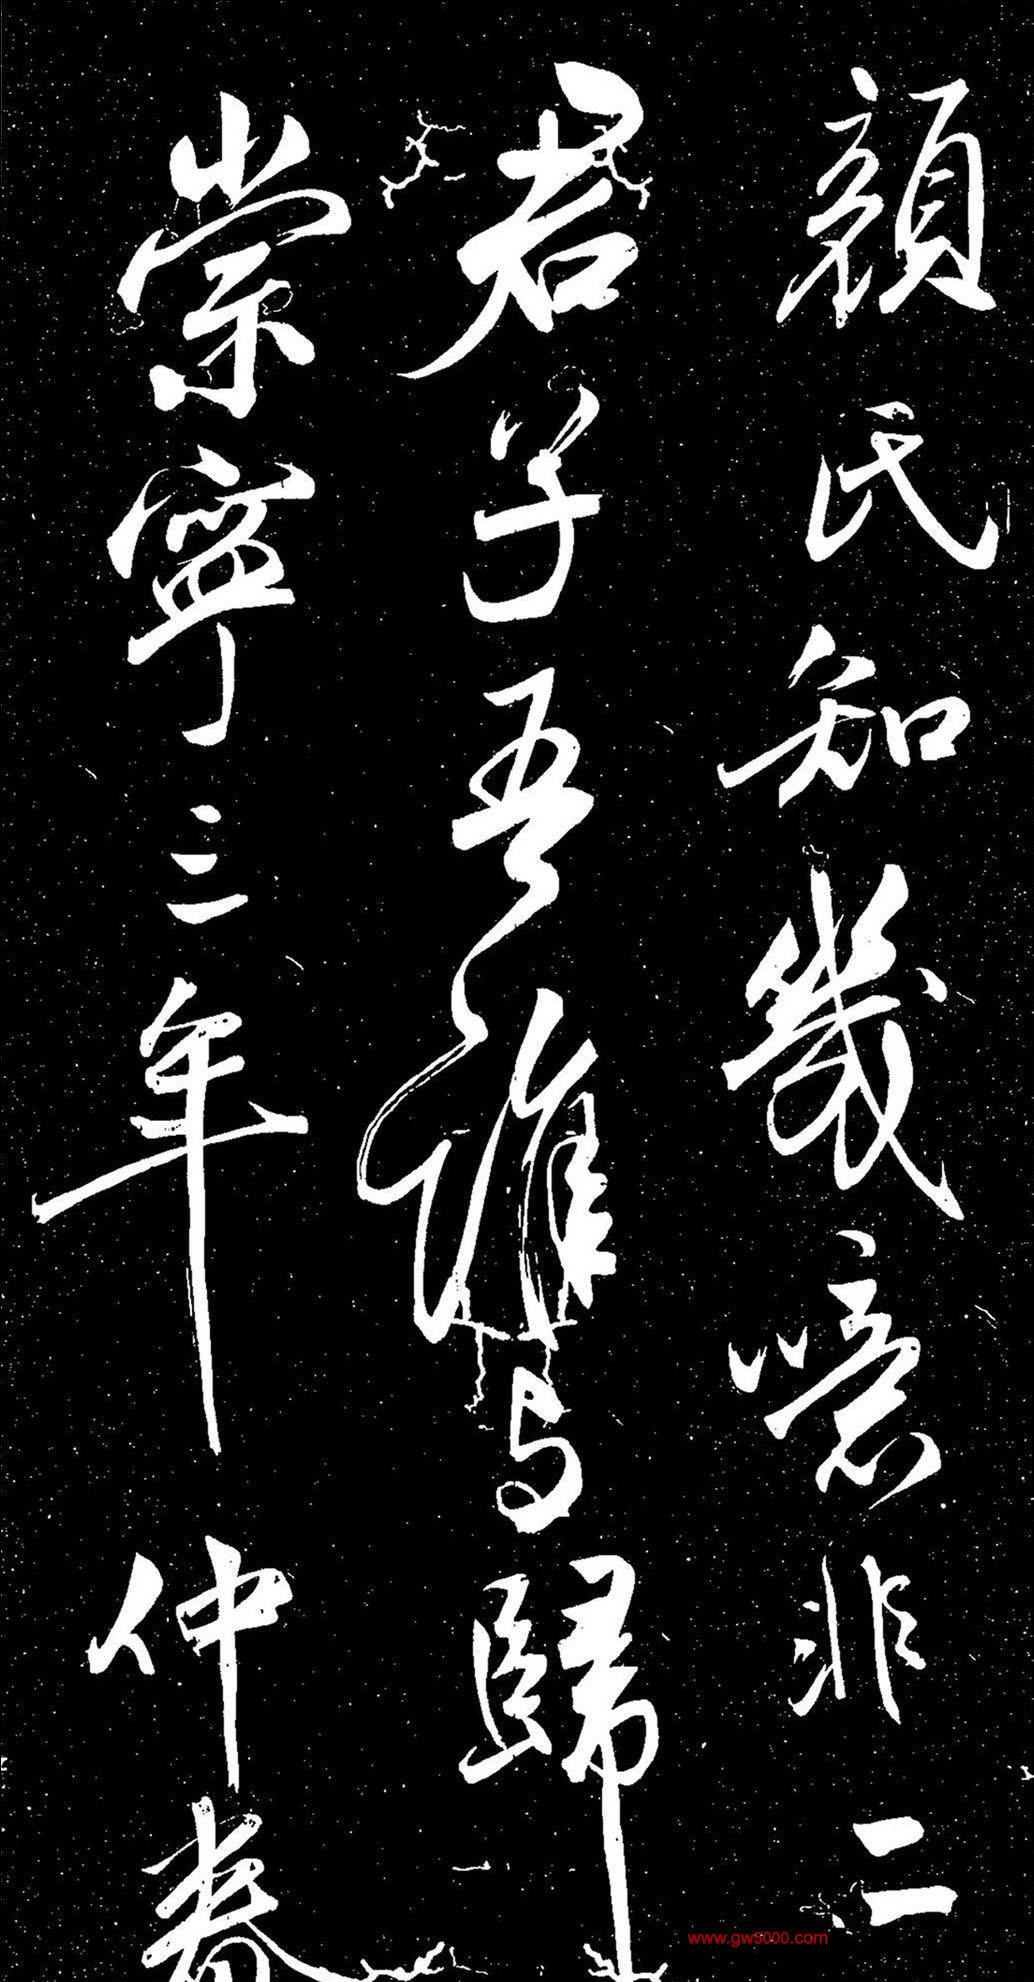 顏氏知幾噫非二
君子吾誰与歸
崇寧三年仲春
www.gw5000.com